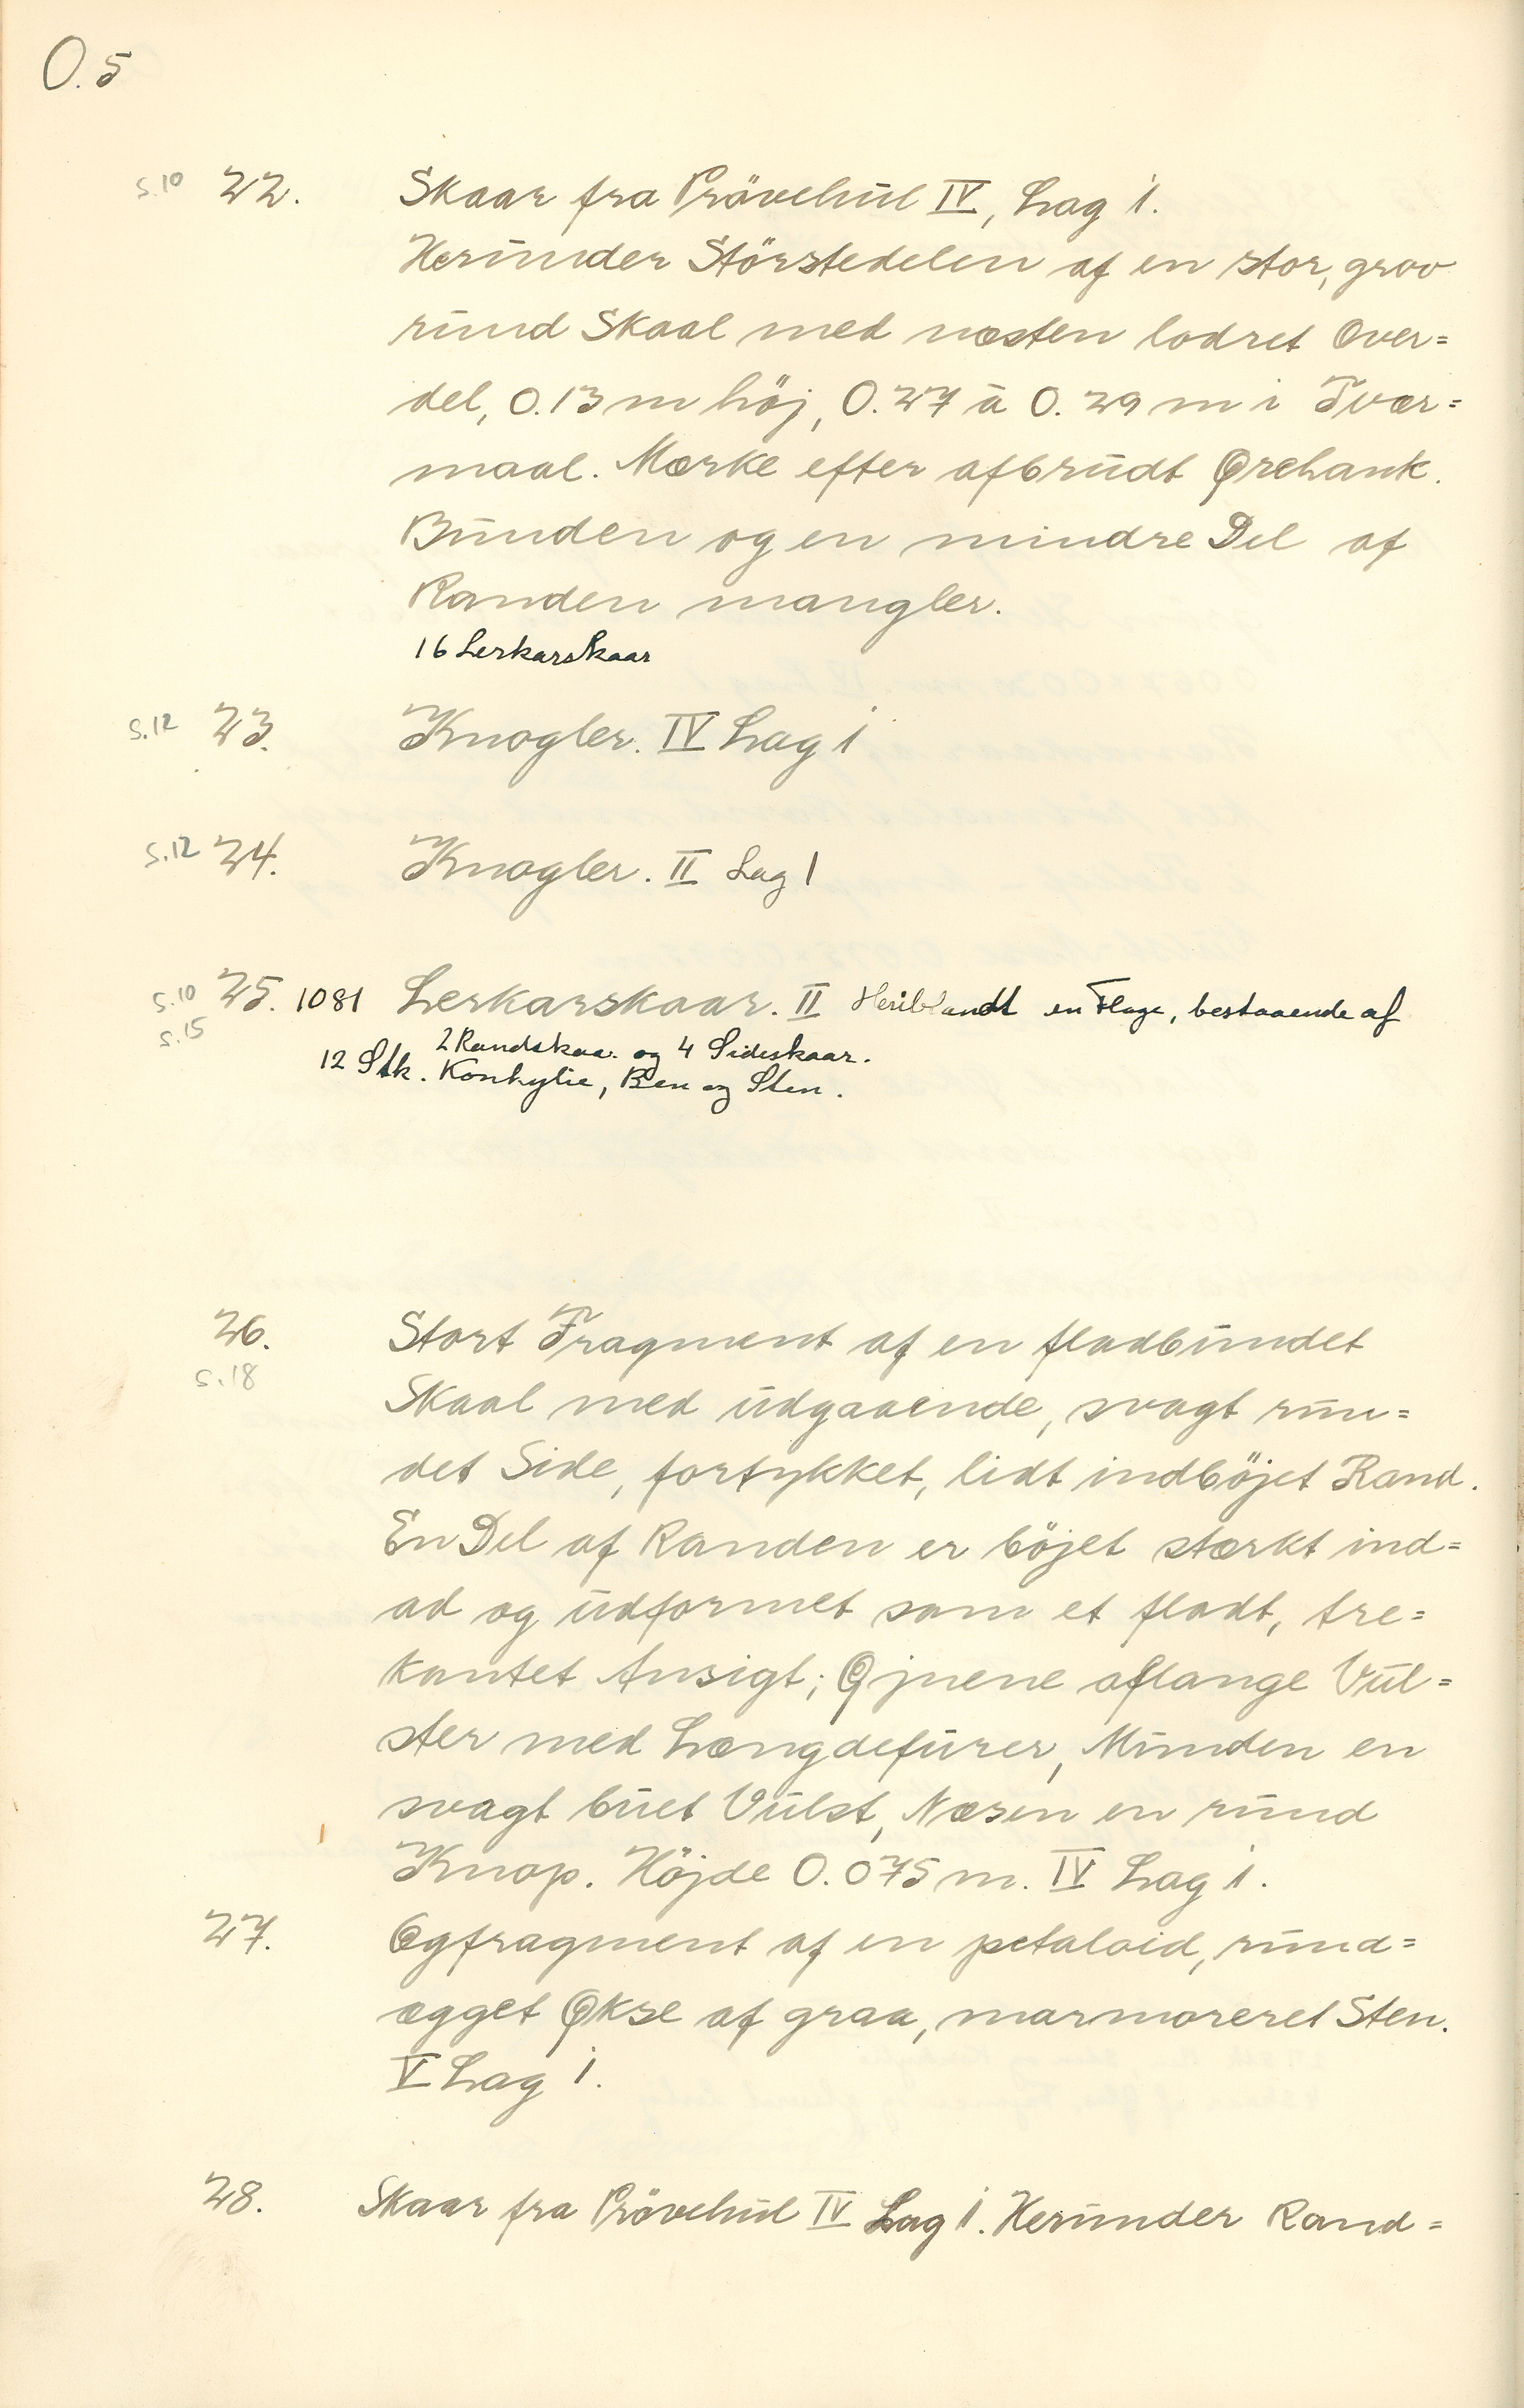 O.5
s.10 22. Skaar fra Prövehül IV, Lag 1.
Heründer Störstedelen af en stor, grov
ründ Skaal med næsten lodret Over=
del, 0.13 m höj, 0.27 à 0.29 m i Tvær=
maal. Mærke efter afbrüdt Ørehank.
Bünden og en mindre Del af
Randen mangler.
16 Lerkarskaar
s.12 23. Knogler. IV Lag 1
s.12 24. Knogler. II Lag 1
s.10 25. 1081 Lerkarskaar. II Heriblandt en Flage, bestaaende af
s.15 2 Randskaa. og 4 Sideskaar.
12 Stk. Konkylie, Ben og Sten.
26. Stort Fragment af en fladbündet
s.18 Skaal med üdgaaende, svagt rün=
det Side, fortykket, lidt indböjet Rand.
En Del af Randen er böjet stærkt ind=
ad og üdformet som et fladt, tre=
kantet Ansigt; Øjnene aflange Vül=
ster med Længdefürer, Münden en
svagt büet Vülst, Næsen en ründ
Knop. Höjde 0.075 m. IV Lag 1.
27. Egfragment af en petaloid, ründ=
ægget Økse af graa, marmoreret Sten.
V Lag 1.
28. Skaar fra Prövehül IV Lag 1. Heründer Rand=